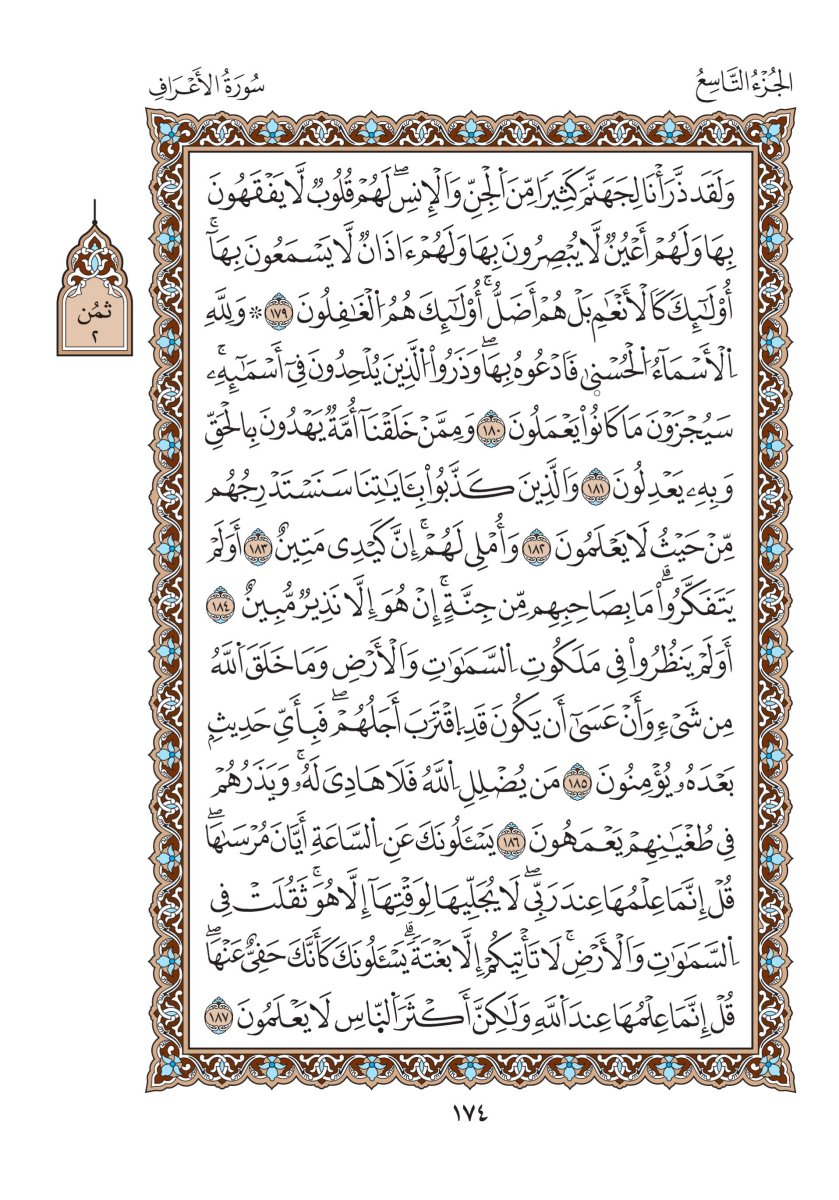 الجُزْءُ التَّاسِعُ
سُورَةُ الأَعْرَافِ
وَلَقَد ذَّرَأْنَا لِجَهَنَّمَ كَثِيرًا مِّنَ اَ۬لْجِنِّ وَالْإِنسِۖ لَهُمْ قُلُوبٌ لَّا يَفْقَهُونَ
بِهَا وَلَهُمْ أَعْيُنٌ لَّا يُبْصِرُونَ بِهَا وَلَهُمْ ءَاذَانٌ لَّا يَسْمَعُونَ بِهَاۚ
أُوْلَٰٓئِكَ كَالْأَنْعَٰمِ بَلْ هُمْ أَضَلُّۚ أُوْلَٰٓئِكَ هُمُ اُ۬لْغَٰفِلُونَ ١٧٩ ۞ وَلِلهِ
اِ۬لْأَسْمَآءُ اُ۬لْحُسْن۪يٰ فَادْعُوهُ بِهَاۖ وَذَرُواْ اُ۬لذِينَ يُلْحِدُونَ فِيٓ أَسْمَٰٓئِهِۦۚ
سَيُجْزَوْنَ مَا كَانُواْ يَعْمَلُونَ ١٨٠ وَمِمَّنْ خَلَقْنَآ أُمَّةٌ يَهْدُونَ بِالْحَقِّ
وَبِهِۦ يَعْدِلُونَ ١٨١ وَالَّذِينَ كَذَّبُواْ بِـَٔايَٰتِنَا سَنَسْتَدْرِجُهُم
مِّنْ حَيْثُ لَا يَعْلَمُونَ ١٨٢ وَأُمْلِي لَهُمْۚ إِنَّ كَيْدِي مَتِينٌ ١٨٣ أَوَلَمْ
يَتَفَكَّرُواْۗ مَا بِصَاحِبِهِم مِّن جِنَّةٍۚ إِنْ هُوَ إِلَّا نَذِيرٌ مُّبِينٌ ١٨٤
أَوَلَمْ يَنظُرُواْ فِي مَلَكُوتِ اِ۬لسَّمَٰوَٰتِ وَالْأَرْضِ وَمَا خَلَقَ اَ۬للَّهُ
مِن شَيْءٍ وَأَنْ عَسَىٰٓ أَن يَكُونَ قَدِ اِ۪قْتَرَبَ أَجَلُهُمْۖ فَبِأَيِّ حَدِيثٍۭ
بَعْدَهُۥ يُؤْمِنُونَ ١٨٥ مَن يُضْلِلِ اِ۬للَّهُ فَلَا هَادِيَ لَهُۥۚ وَيَذَرُهُمْ
فِي طُغْيَٰنِهِمْ يَعْمَهُونَ ١٨٦ يَسْـَٔلُونَكَ عَنِ اِ۬لسَّاعَةِ أَيَّانَ مُرْسَىٰهَاۖ
قُلْ إِنَّمَا عِلْمُهَا عِندَ رَبِّيۖ لَا يُجَلِّيهَا لِوَقْتِهَآ إِلَّا هُوَۚ ثَقُلَتْ فِي
اِ۬لسَّمَٰوَٰتِ وَالْأَرْضِۚ لَا تَأْتِيكُمْ إِلَّا بَغْتَةًۗ يَسْـَٔلُونَكَ كَأَنَّكَ حَفِيٌّ عَنْهَاۖ
قُلْ إِنَّمَا عِلْمُهَا عِندَ اَ۬للَّهِ وَلَٰكِنَّ أَكْثَرَ اَ۬لنَّاسِ لَا يَعْلَمُونَ ١٨٧
ثمُن
٢
١٧٤